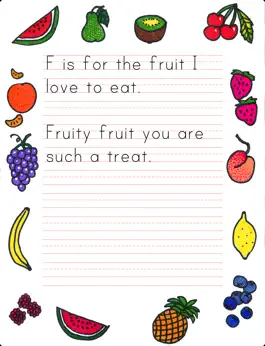 F is for the fruit I
love to eat.
Fruity fruit you are
such a treat.